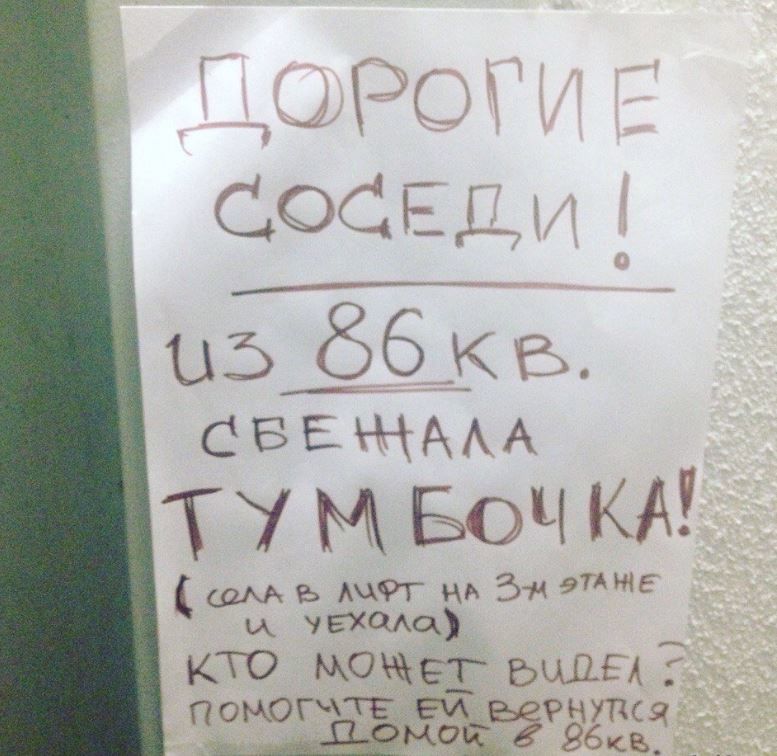 ДОРОГИЕ
СОСЕДИ!
из 86 кв.
СБЕЖАЛА
ТУМБОЧКА!
(села в лифт на 3-м этаже
и уехала)
кто может видел?
помогите ей вернуться
домой в 86кв